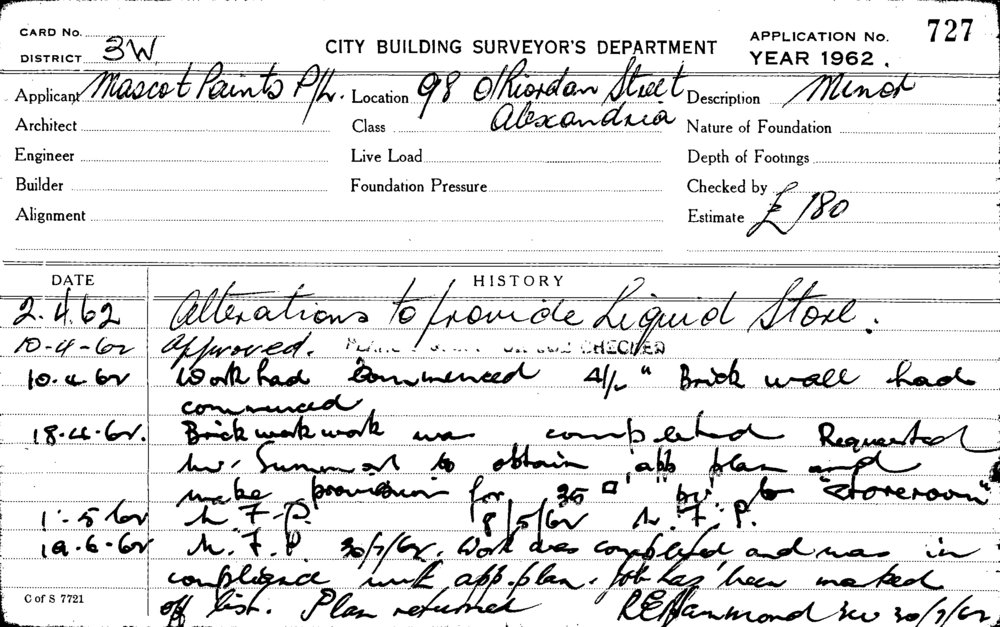 CARD No.
DISTRICT 3W
CITY BUILDING SURVEYOR'S DEPARTMENT
APPLICATION No. 727
YEAR 1962.
Applicant Mascot Paints P/L. Location 98 O'Riordan Street Description Minor
Alexandria
Architect Class Nature of Foundation
Engineer Live Load Depth of Footings
Builder Foundation Pressure Checked by
Alignment Estimate £ 180
DATE HISTORY
2.4.62 Alterations to provide Liquid Store.
10-4-62 Approved. CHECKED
10.4.62 Work had commenced 4½" Brick wall had
commenced
18.4.62. Brickwork work was completed Requested
Mr. to obtain app plan and
make provision for to "storeroom"
1.5.62 N.F.P. 8/5/62 N.F.P.
19.6.62 N.F.P 30/7/62. Work was completed and was in
compliance with app. plan. Job has been marked
off list. Plan returned REHammond 3W 30/7/62
C of S 7721